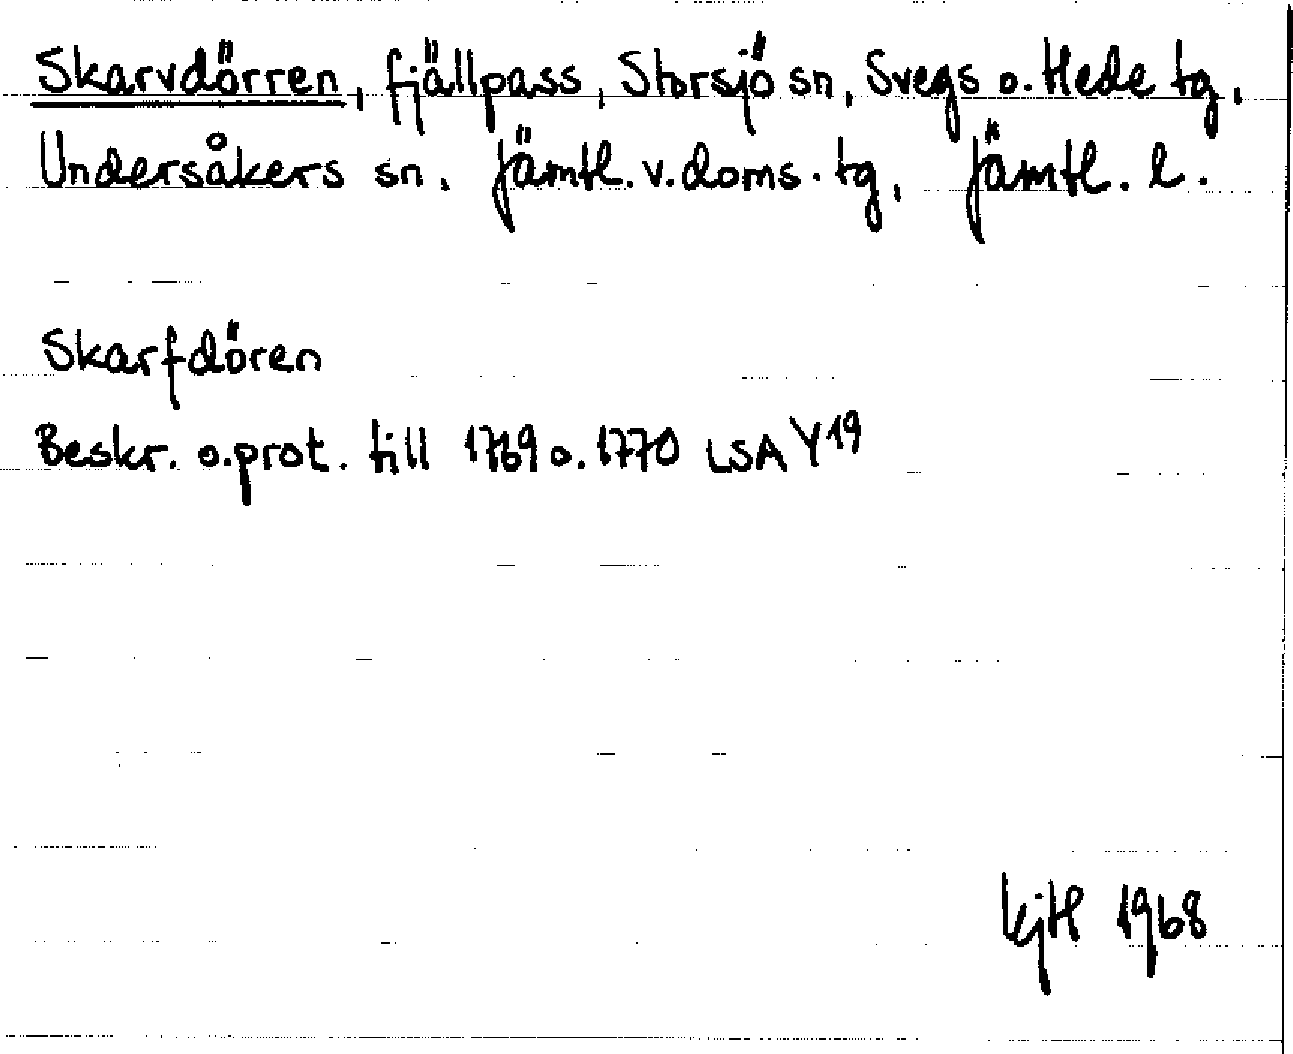 Skarvdörren, fjällpass, Storsjö sn, Svegs o. Hede tg,
Undersåkers sn. Jämtl. v. doms. tg, Jämtl. l.
Skarfdören
Beskr. o. prot. till 1769 o. 1770 LSA Y19
KjH 1968